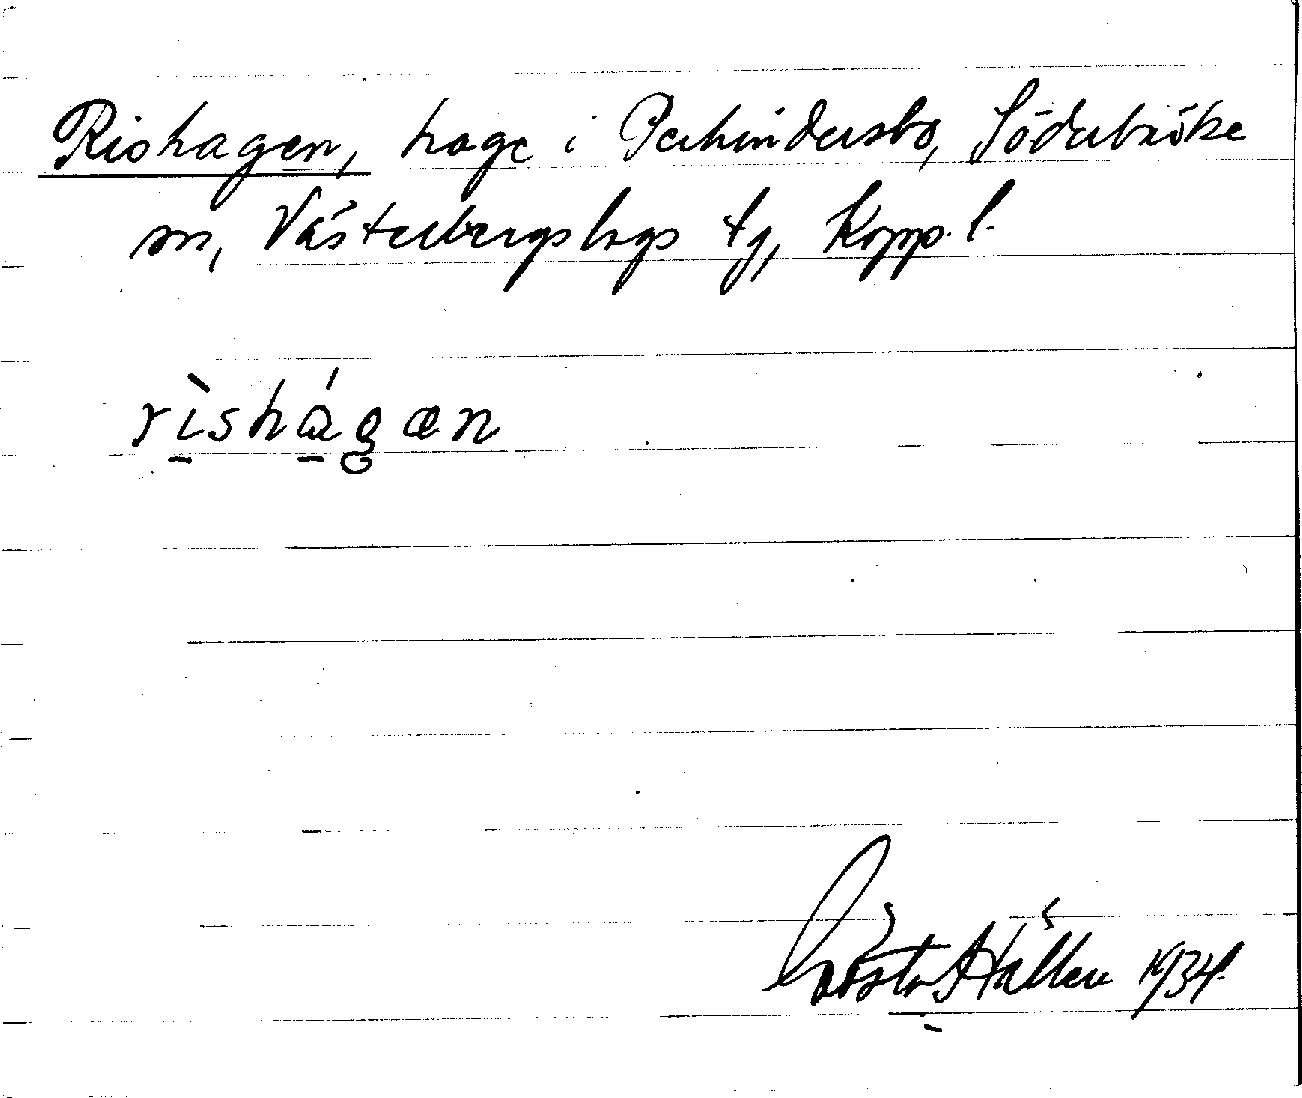 Rishagen, hage i Perhindersbo, Söderbärke
sn, Västerbergslags tg, Kopp. l.
rìshágæn
Gösta Hallén 1934.